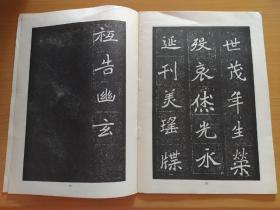 世茂年生榮
役哀傳光永
延刊美瑤牒
祇告幽玄